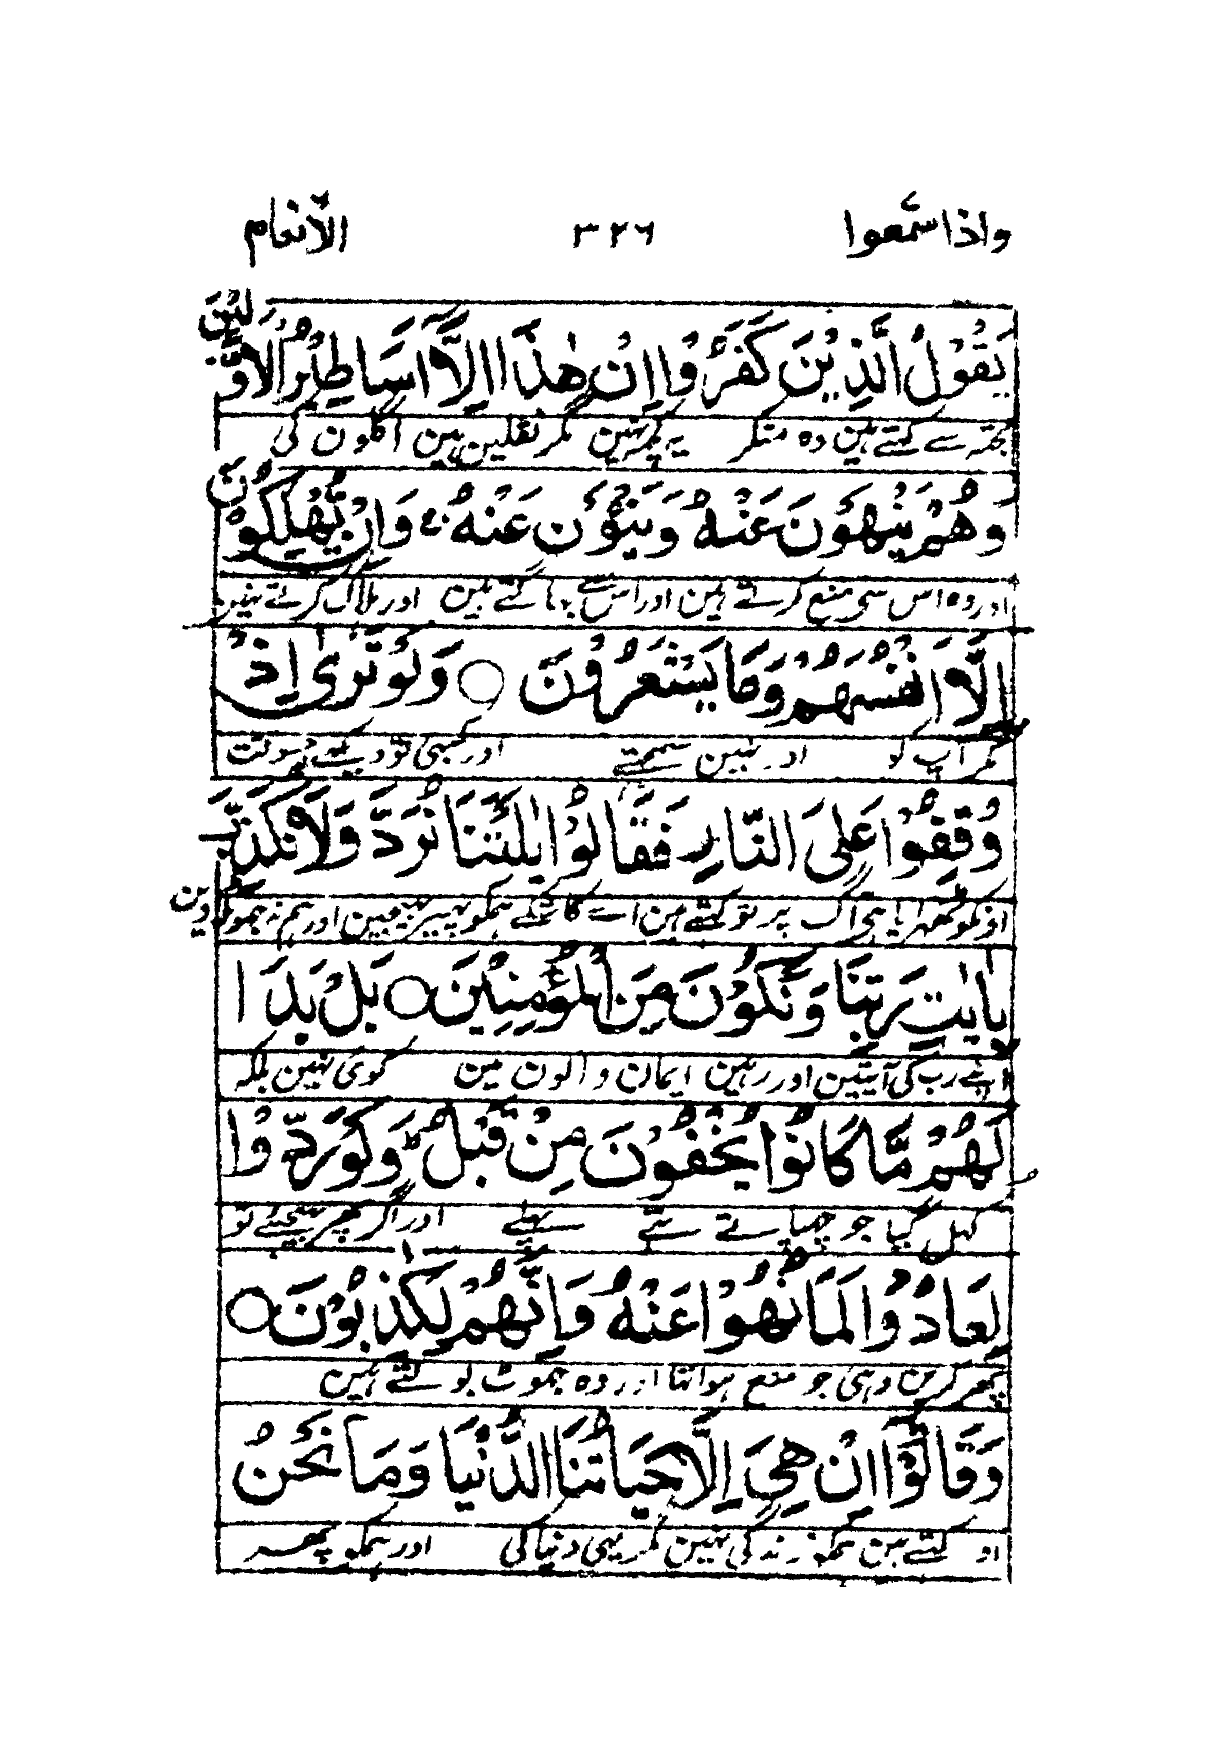 واذاسمعوا ٣٢٦ الانعام
يَقُوْلُ الَّذِيْنَ كَفَرُوْا اِنْ هٰذَا اِلَّا اَسَاطِيْرُ الْاَوَّلِيْنَ
تجھ سے کہتے ہین وہ منکر یہ کچھ نہین مگر نقلین ہین اگلون کی
وَهُمْ يَنْهَوْنَ عَنْهُ وَيَنْئَوْنَ عَنْهُ ۚ وَاِنْ يُّهْلِكُوْنَ
اور وہ اس سی منع کرتے ہین اور اس سے بھاگتے ہین اور ہلاک کرتے نہین
اِلَّا اَنْفُسَهُمْ وَمَا يَشْعُرُوْنَ ○ وَلَوْ تَرٰى اِذْ
مگر آپ کو اور نہین سمجھتے اور کبھی تو دیکھے جسوقت
وُقِفُوْا عَلَى النَّارِ فَقَالُوْا يٰلَيْتَنَا نُرَدُّ وَلَا نُكَذِّبَ
انکو ٹھہرایا ہی آگ پر تو کہتے ہین اے کاشکے ہمکو پھیر بھیجین اور ہم نہ جھوٹلاوین
بِاٰيٰتِ رَبِّنَا وَنَكُوْنَ مِنَ الْمُؤْمِنِيْنَ ○ بَلْ بَدَا
اپنے رب کی آیتین اور رہین ایمان والون مین کوی نہین بلکہ
لَهُمْ مَّا كَانُوْا يُخْفُوْنَ مِنْ قَبْلُ ؕ وَلَوْ رُدُّوْا
کھل گیا جو چھپاتے تھے پہلے اور اگر پھر بھیجئے تو
لَعَادُوْا لِمَا نُهُوْا عَنْهُ وَاِنَّهُمْ لَكٰذِبُوْنَ ○
پھر کرین وہی جو منع ہوا تھا اور وہ جھوٹ بولتے ہین
وَقَالُوْٓا اِنْ هِيَ اِلَّا حَيَاتُنَا الدُّنْيَا وَمَا نَحْنُ
او کہتے ہین ہمکو زندگی نہین مگر یہی دنیا کی اور ہمکو پھر